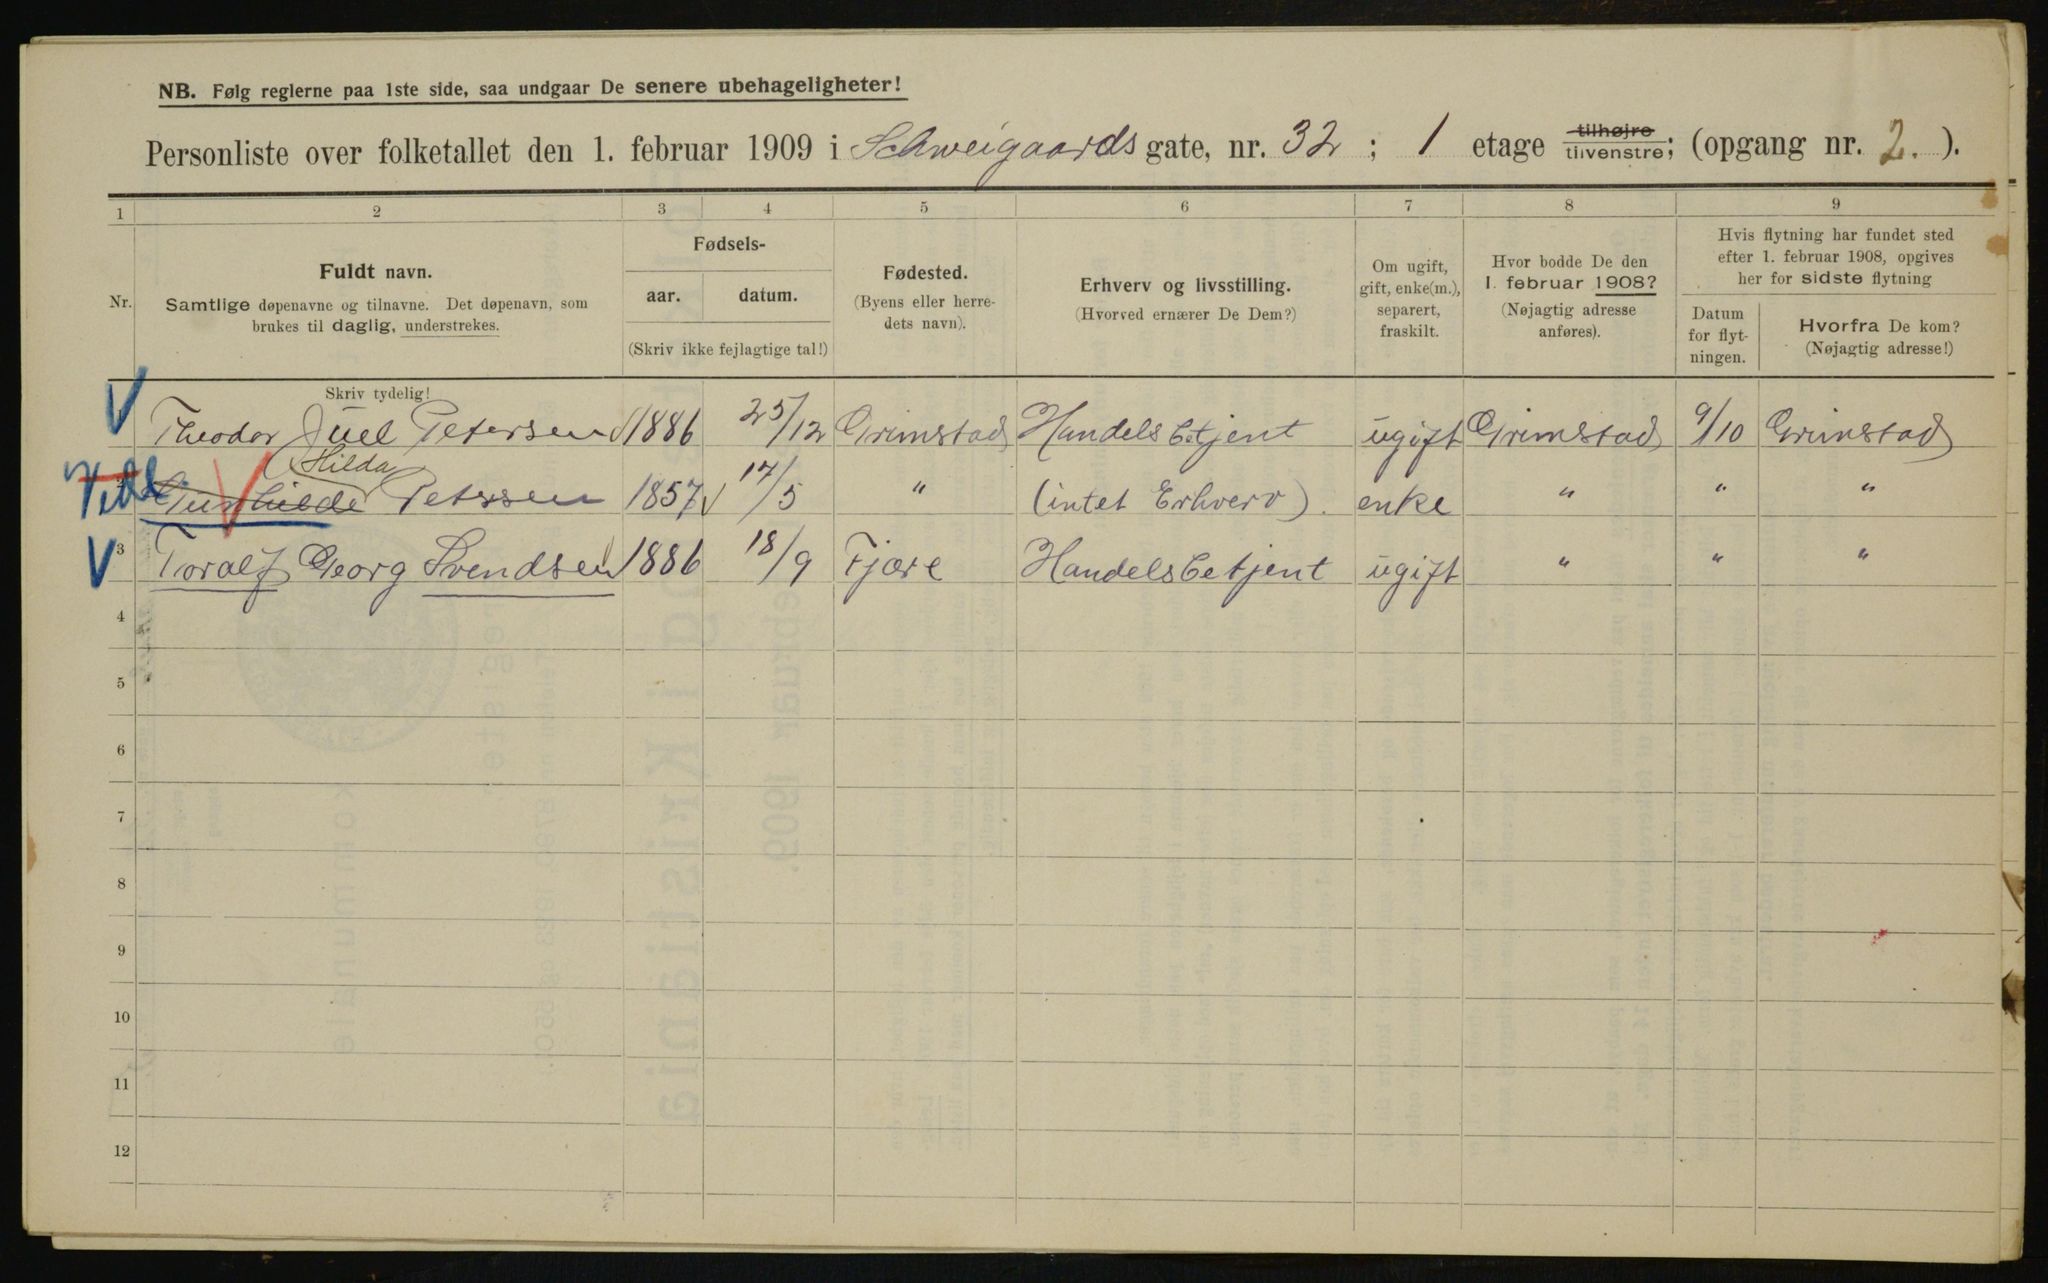 NB. Følg reglerne paa 1ste side, saa undgaar De senere ubehageligheter!
Personliste over folketallet den 1. februar 1909 i Schweigaards gate, nr. 32 ; 1 etage tilhøjre tilvenstre; (opgang nr. 2. ).
1 2 3 4 5 6 7 8 9
Nr.
Fuldt navn.
Samtlige døpenavne og tilnavne. Det døpenavn, som
brukes til daglig, understrekes.
Skriv tydelig!
Fødsels-
aar. datum.
(Skriv ikke fejlagtige tal!)
Fødested.
(Byens eller herre-
dets navn).
Erhverv og livsstilling.
(Hvorved ernærer De Dem?)
Om ugift,
gift, enke(m.),
separert,
fraskilt.
Hvor bodde De den
1. februar 1908?
(Nøjagtig adresse
anføres).
Hvis flytning har fundet sted
efter 1. februar 1908, opgives
her for sidste flytning
Datum
for flyt-
ningen.
Hvorfra De kom?
(Nøjagtig adresse!)
Theodor Juel Petersen 1886 25/12 Grimstad Handelsbetjent ugift Grimstad 9/10 Grimstad
Hilda
2 Gunhilde Petersen 1857 17/5 " (intet Erhverv). enke " " "
3 Toralf Georg Svendsen 1886 18/9 Fjære Handelsbetjent ugift " " "
4
5
6
7
8
9
10
11
12